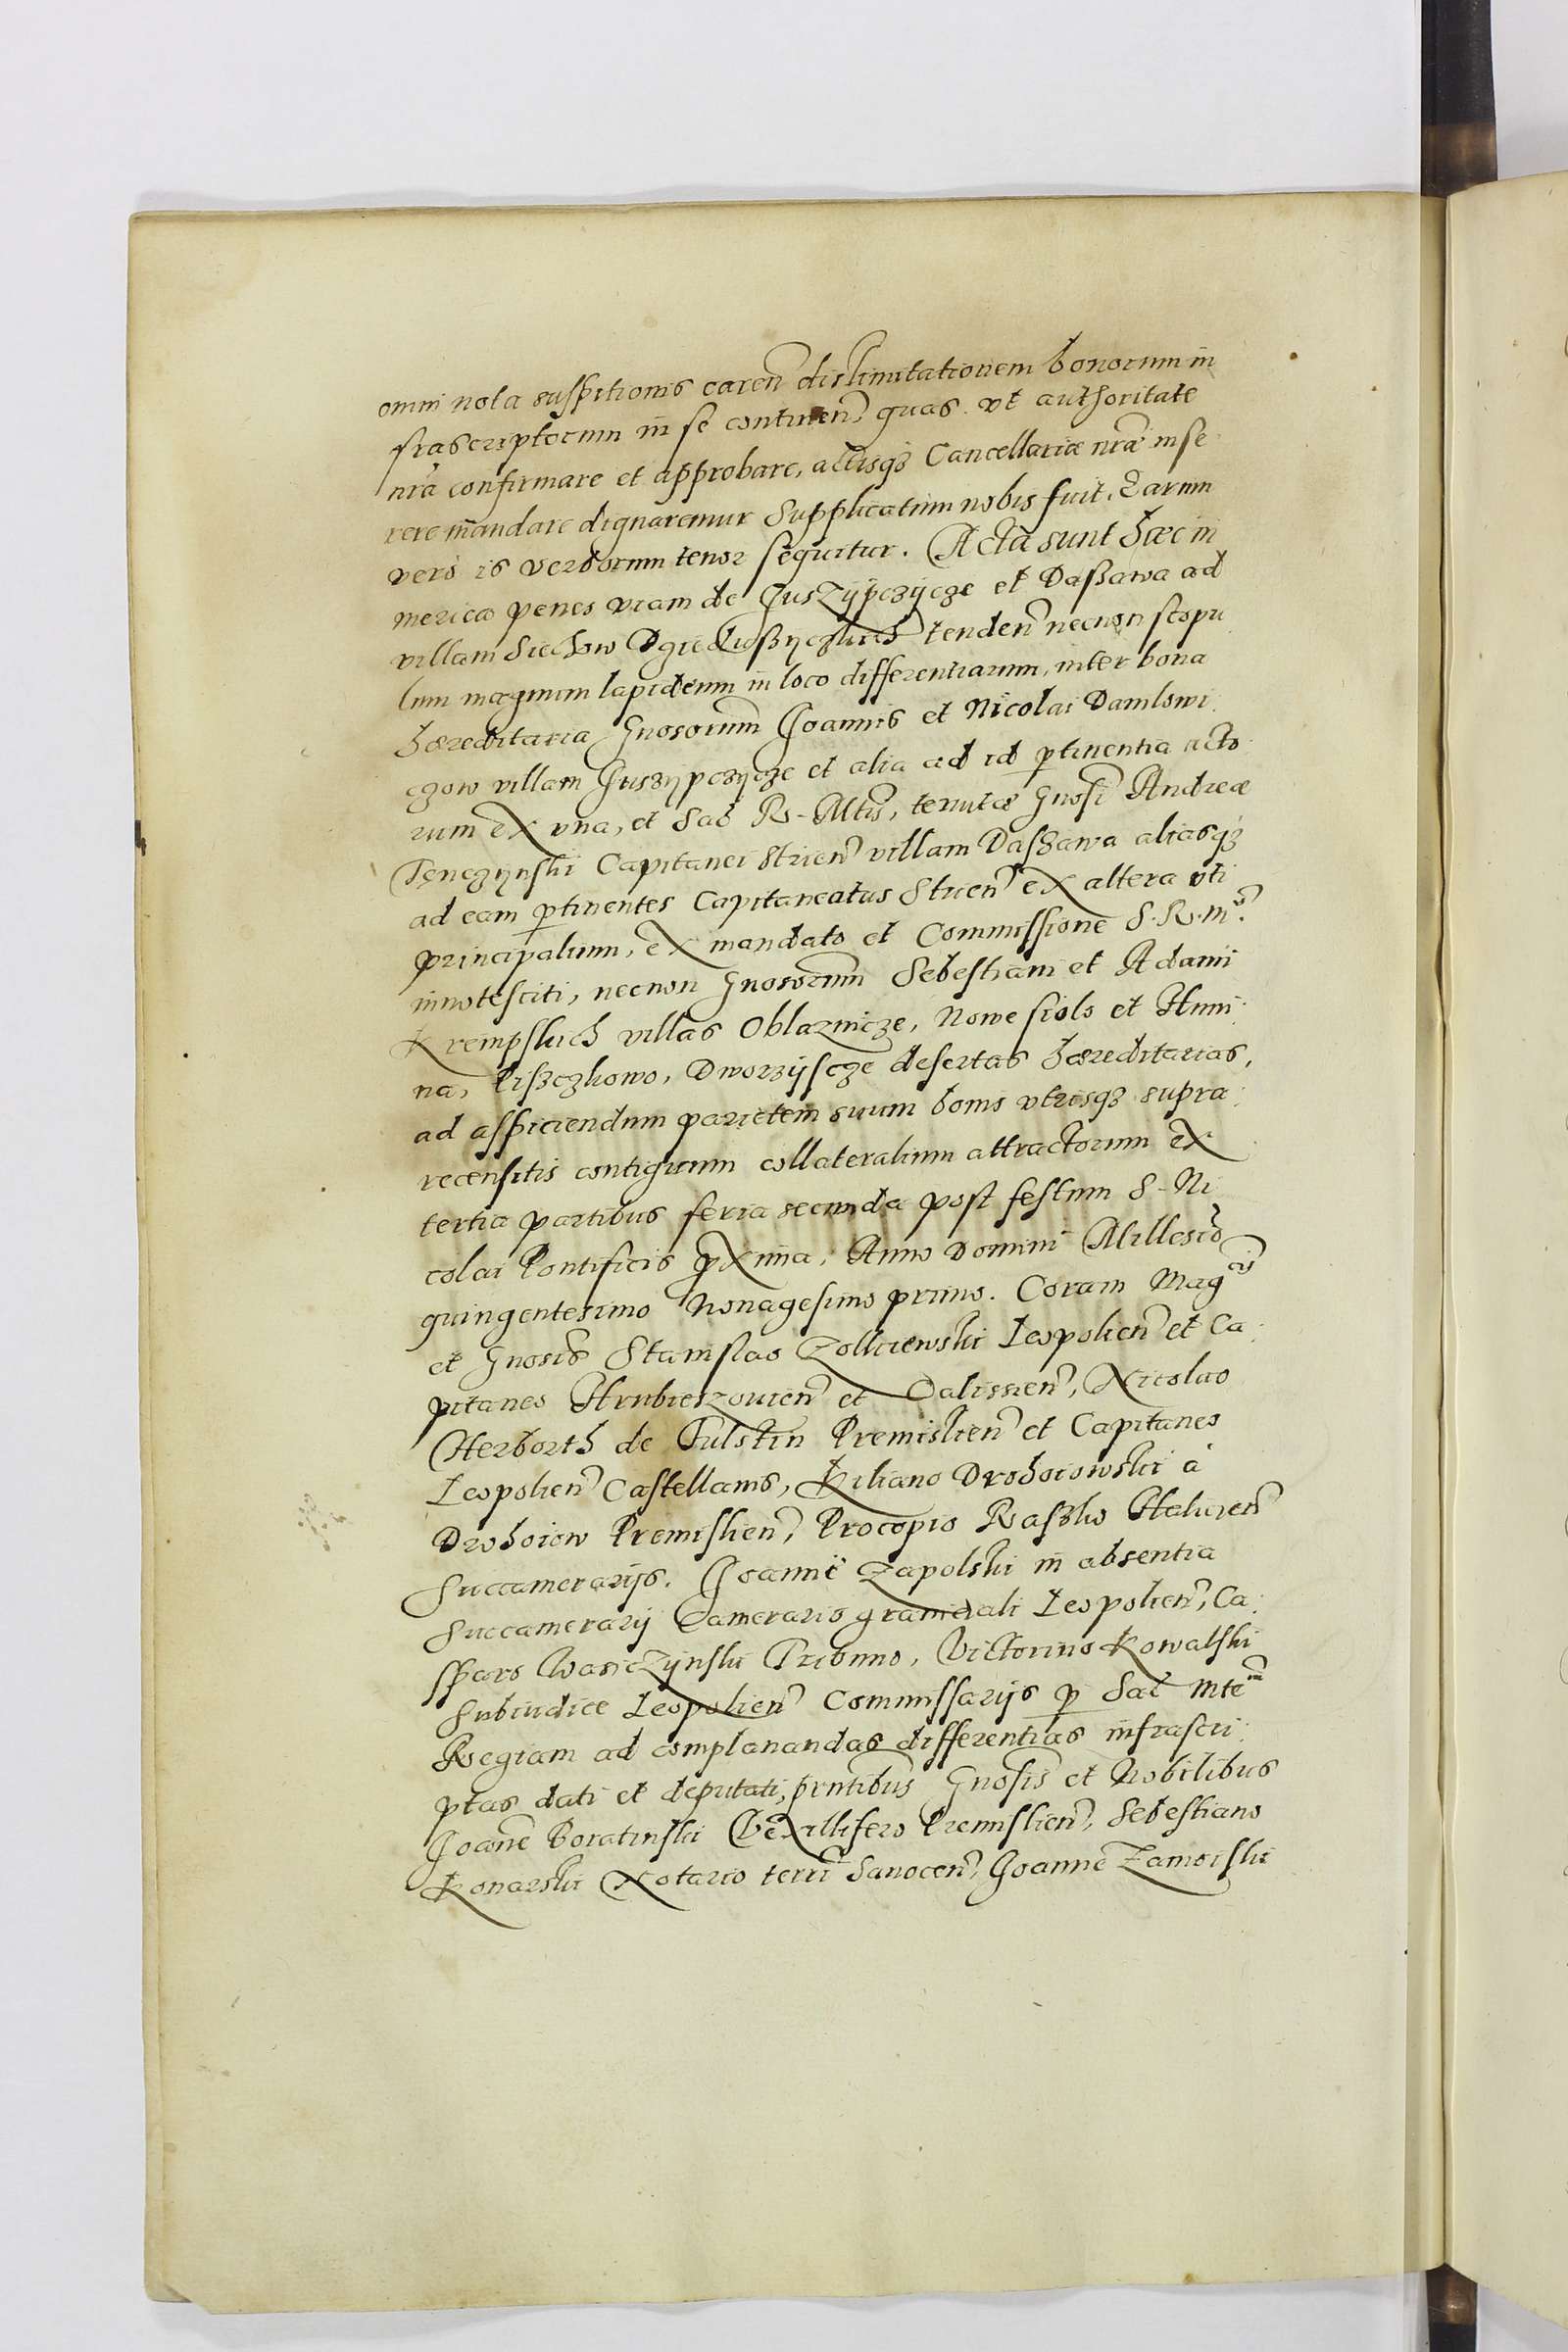 omni nota suspitionis caren̄ dislimitationem bonorum in
frascriptorum in se continen̄, quas vt authoritate
nr̄a confirmare et approbare, actisq₃ Cancellariæ nr̄æ inse
rere mandare dignaremur supplicatum nobis fuit. Earum
vero is verborum tenor sequitur. Acta sunt hæc in
merica penes viam de Juszÿpczÿcze et Daßawa ad
villam Siechow Dziedußÿczkich tenden̄ necnon scopu
lum magnum lapideum in loco differentiarum, inter bona
hæreditaria Gnosorum Joannis et Nicolai Danilowi
czow villam Juszÿpczÿcze et alia ad id ꝑtinentia acto
rum ex vna, et Sac R. Mtis, tenutæ Gnosi Andreæ
Tęnczÿnski Capitanei Strien̄ villam Daszawa aliasq₃
ad eam ꝑtinentes Capitaneatus Strien̄ ex altera vti
principalium, ex mandato et Commissione S. R. Mtis
innotesciti, necnon Gnosorum Sebestiani et Adami
Krempskich villas Oblaznicze, Nowe siolo et Hnni
na, Liszczkowo, Dworzÿscze desertas hæreditarias,
ad aspiciendum parietem suum bonis vtrisq₃ supra
recensitis contiguum collateralium attractorum ex
tertia partibus feria secunda post festum S. Ni
colai Pontificis ꝓxima, Anno Domini Millesio
quingentesimo Nonagesimo primo. Coram Magcis
et Gnosis Stanislao Zolkiewski Leopolien̄ et Ca
pitaneo Hrubieszovien̄ et Calissien̄, Nicolao
Herborth de Fulstin Premislien̄ et Capitaneo
Leopolien̄ Castellanis, Kiliano Drohoiowski a
Drohoiow Premislien̄, Procopio Raszko Halicien̄
Succamerarijs. Joanne Zapolski in absentia
Succamerarij Camerario granitiali Leopolien̄, Ca
sparo Wasiczÿnski Tribuno, Victorino Kowalski
Subiudice Leopolien̄ Commissarijs ꝑ Sac Mtem
Regiam ad complanandas differentias infrascri
ptas dati et deputati, pn̄tibus Gnosis et Nobilibus
Joane Boratinski Vexillifero Premislien̄, Sebestiano
Konarski Notario terri Sanocen̄, Joanne Zamoiski